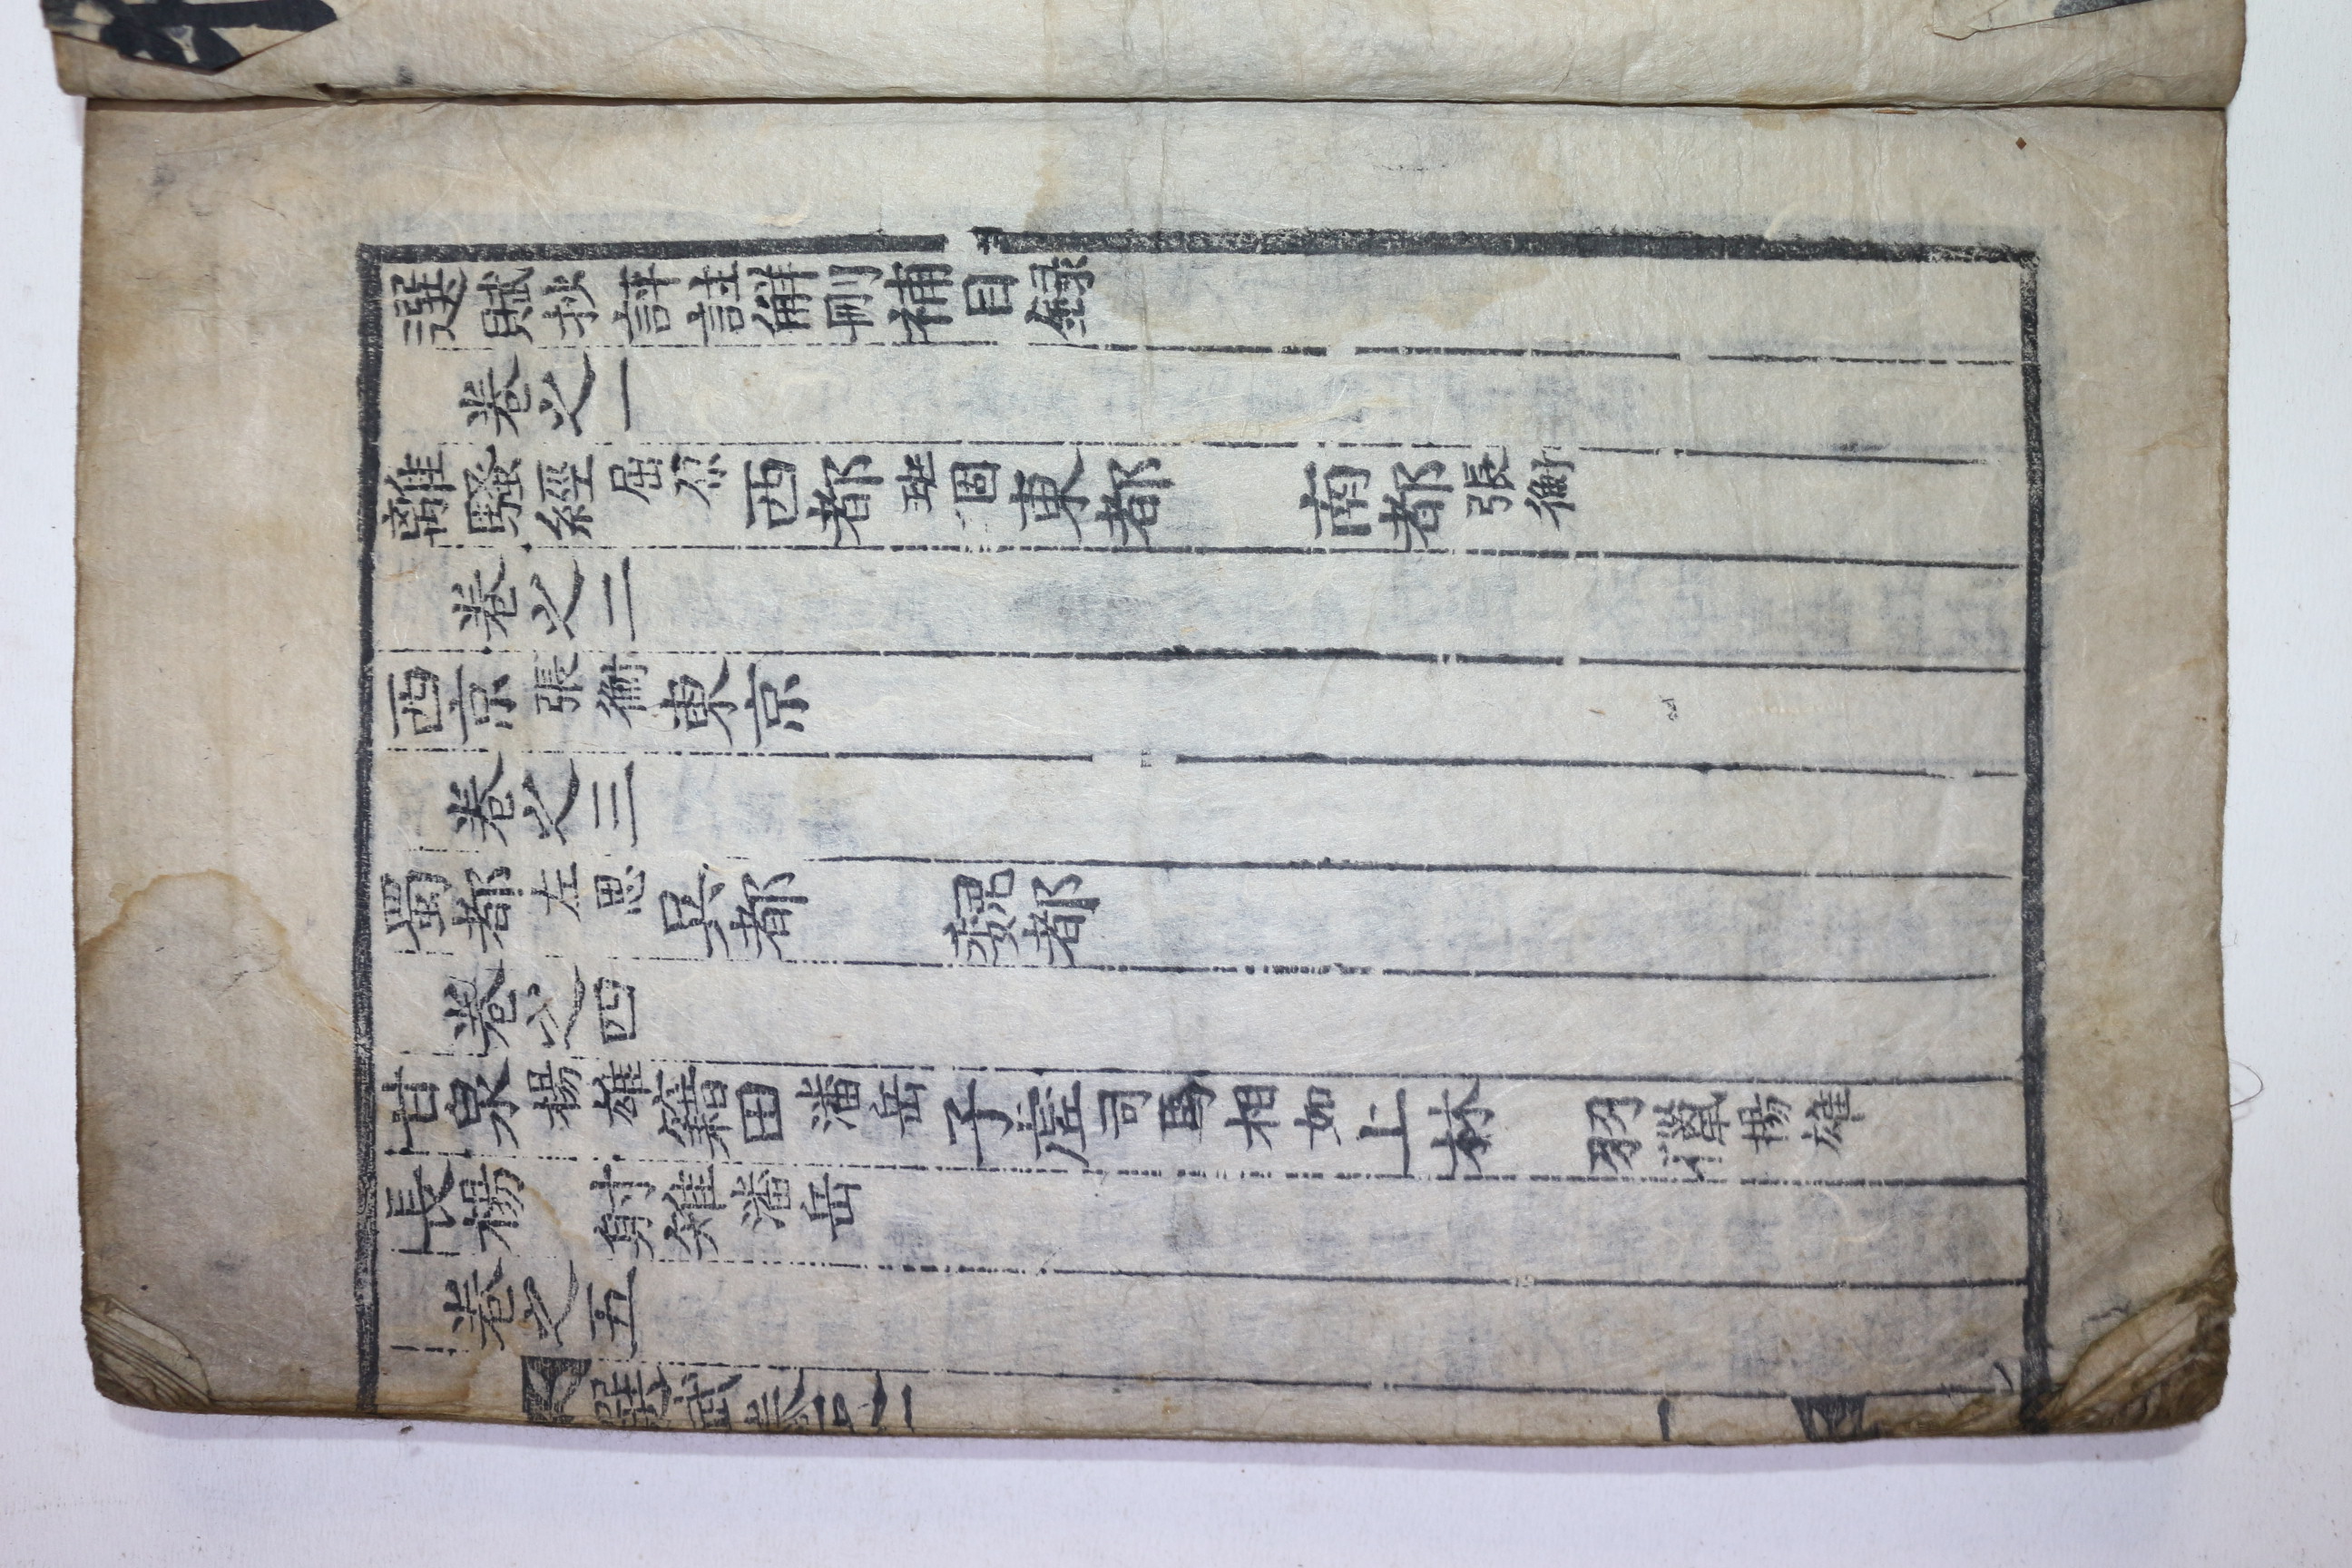 選賦抄評註觧刪補目錄
卷之一
離騷經 屈原 西都 班固 東都 南都 張衡
卷之二
西京 張衡 東京
卷之三
蜀都 左思 吳都 魏都
卷之四
甘泉 楊雄 籍田 潘岳 子虛 司馬相如 上林 羽獵 揚雄
長楊 射雉 潘岳
卷之五